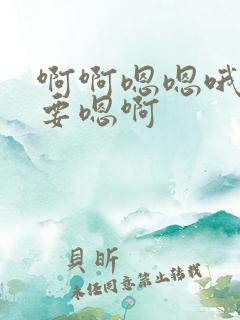 啊啊嗯嗯哦
要嗯啊
貝昕
未经同意禁止转载